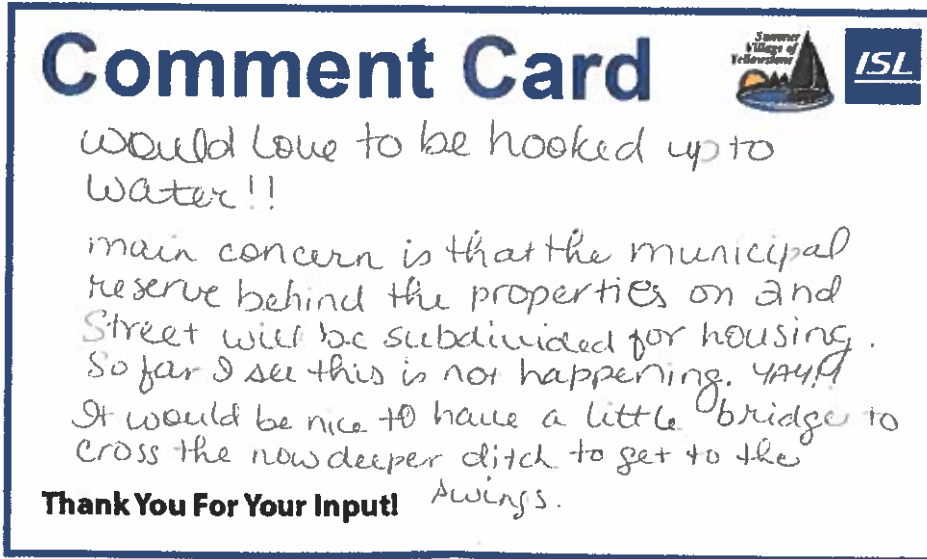 Comment Card
Summer
Village of
Yellowstone
ISL
Would Love to be hooked up to
Water!!
main concern is that the municipal
reserve behind the properties on 2nd
Street will be subdivided for housing.
So far I see this is not happening. YAY!!
It would be nice to have a little bridge to
cross the now deeper ditch to get to the
swings.
Thank You For Your Input!